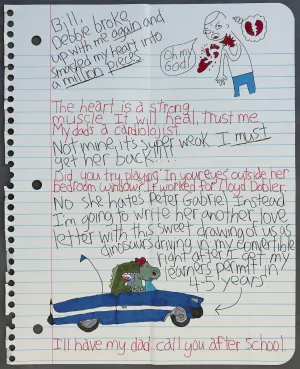 Bill,
Debbie broke
up with me again and
smashed my heart into
a million pieces
Oh my
God!
The heart is a strong
muscle. It will heal, trust me.
My dad's a cardiologist
Not mine, it's super weak I must
get her back!!!!
Did you try playing "In your eyes" outside her
bedroom window? It worked for Lloyd Dobler.
No she hates Peter Gabriel. Instead
I'm going to write her another love
letter with this sweet drawing of us as
dinosaurs driving in my convertible
right after I get my
learners permit in
4-5 years.
I'll have my dad call you after school.